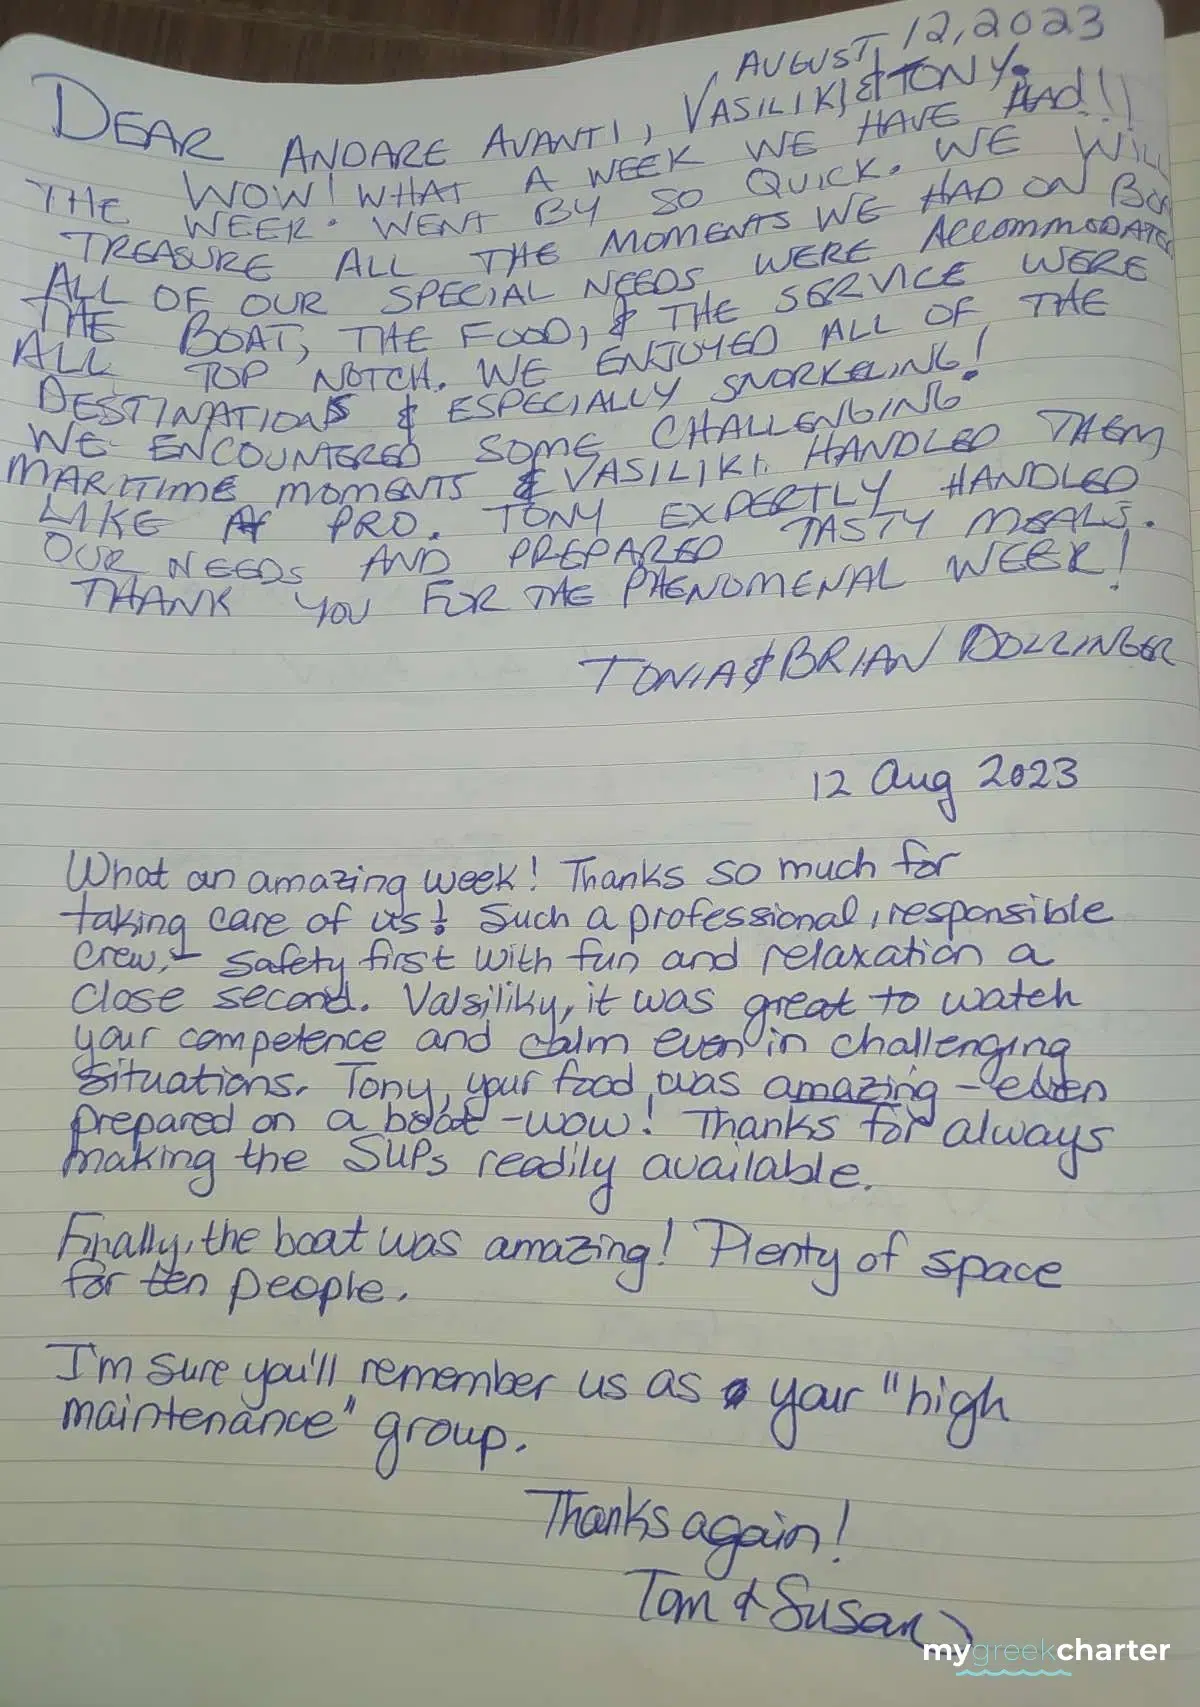 AUGUST, 12, 2023
DEAR ANDARE AVANTI, VASILIKI & TONY.
WOW! WHAT A WEEK WE HAVE HAD!!
THE WEEK WENT BY SO QUICK. WE WILL
TREASURE ALL THE MOMENTS WE HAD ON
ALL OF OUR SPECIAL NEEDS WERE
THE BOAT, THE FOOD, & THE SERVICE WERE
ALL TOP NOTCH. WE ENJOYED ALL OF THE
DESTINATIONS & ESPECIALLY SNORKELING!
WE ENCOUNTERED SOME CHALLENGING
MARITIME MOMENTS & VASILIKI HANDLED THEM
LIKE A PRO. TONY EXPERTLY HANDLED
OUR NEEDS AND PREPARED TASTY MEALS.
THANK YOU FOR THE PHENOMENAL WEEK!
TONIA & BRIAN
12 Aug 2023
What an amazing week! Thanks so much for
taking care of us! Such a professional, responsible
crew, safety first with fun and relaxation a
close second. Valsiliky, it was great to watch
your competence and calm even in challenging
situations. Tony, your food was amazing - even
prepared on a boat - wow! Thanks for always
making the SUPs readily available.
Finally, the boat was amazing! Plenty of space
for ten people.
I'm sure you'll remember us as your "high
maintenance" group.
Thanks again!
Tom & Susan
mygreekcharter